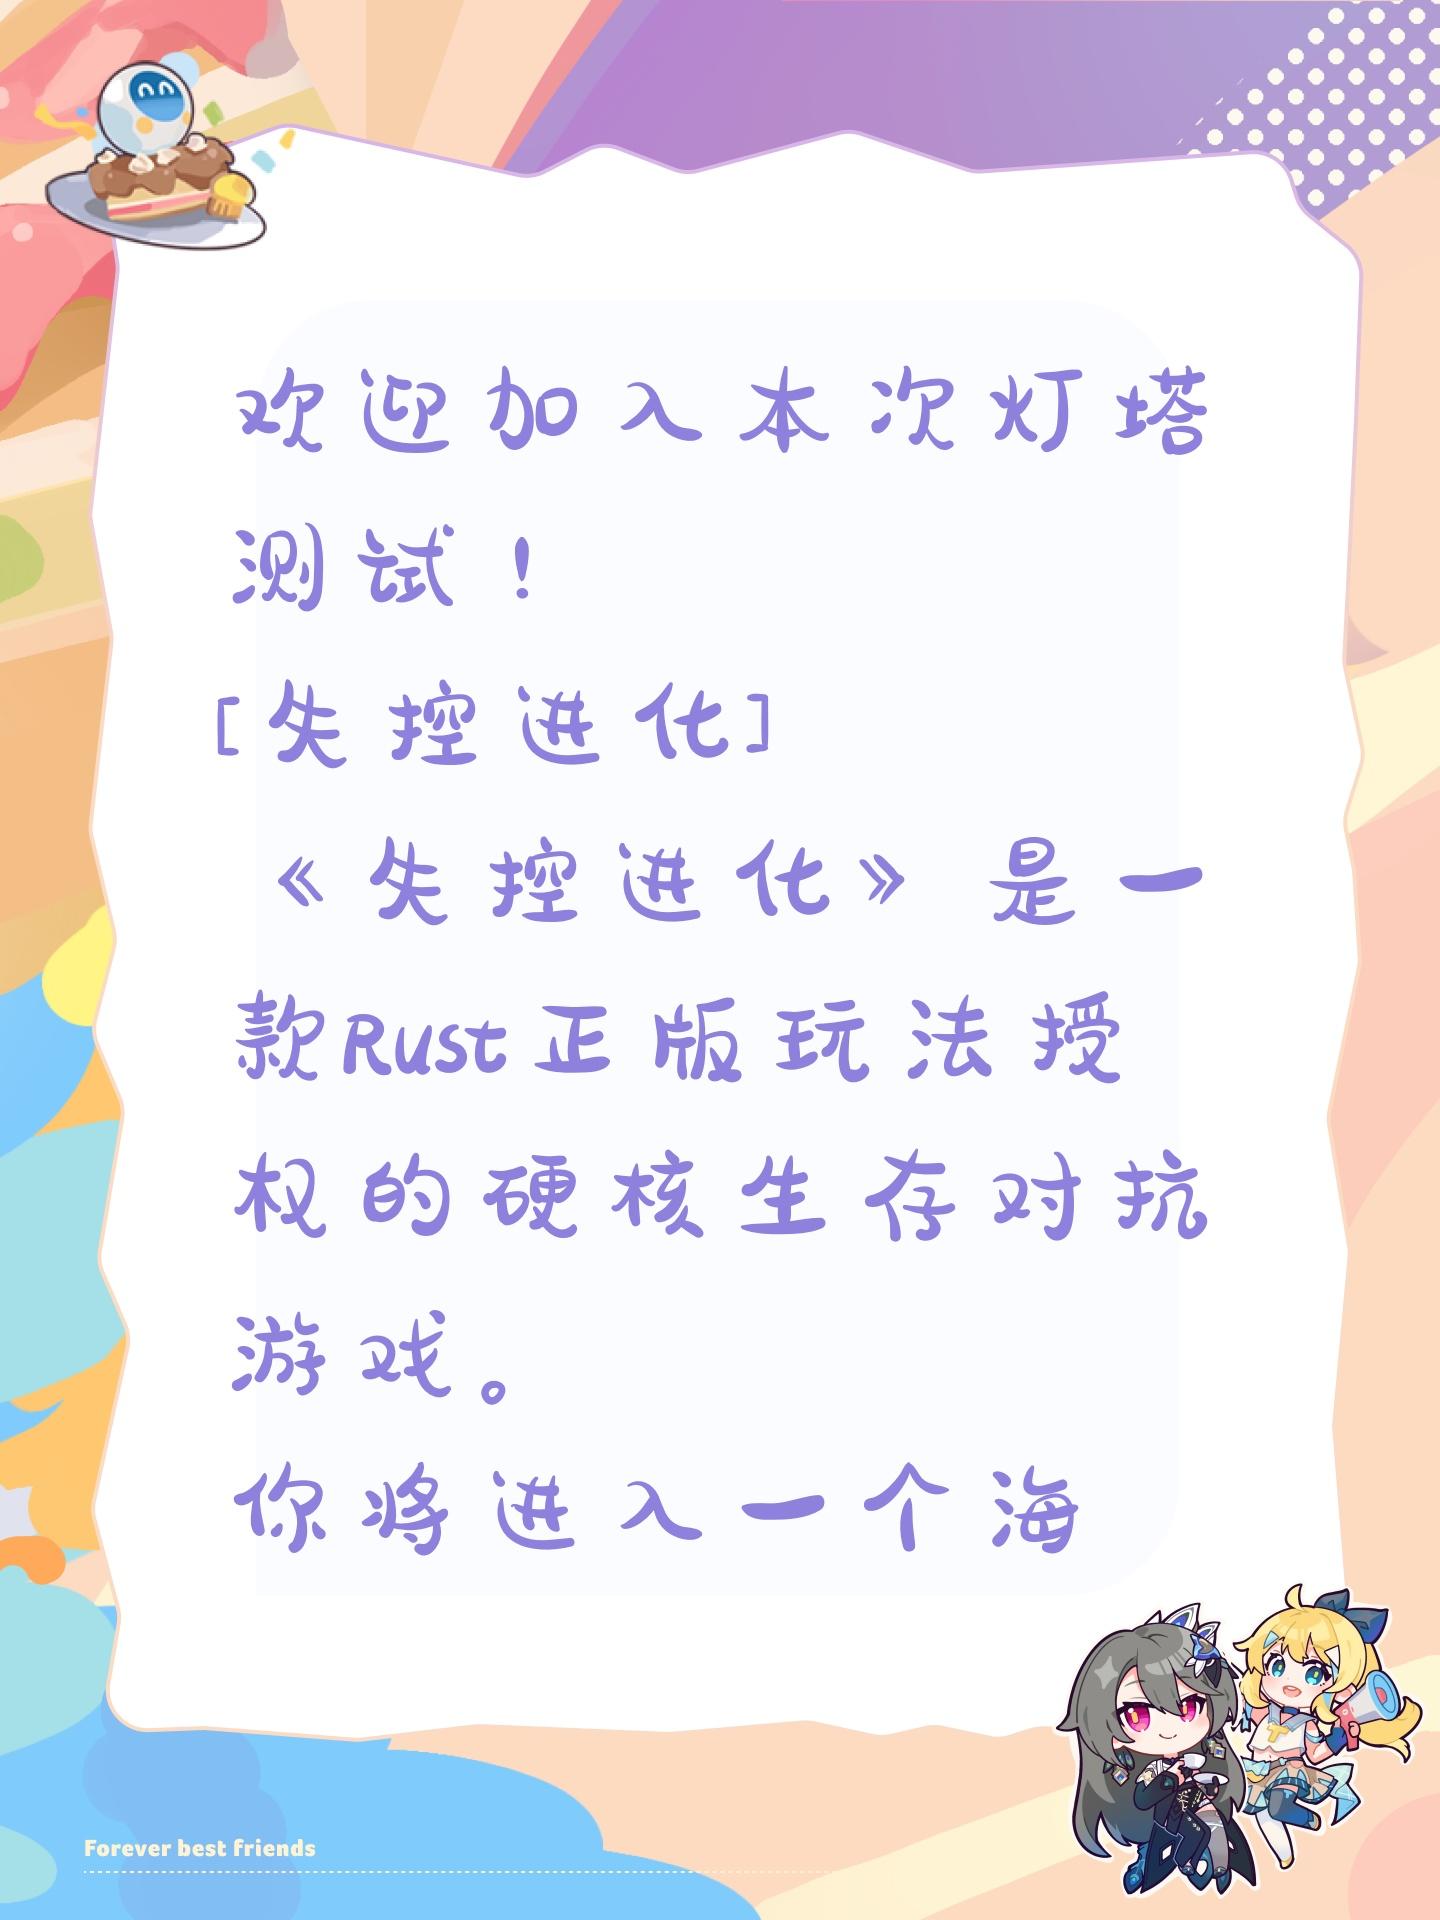 欢迎加入本次灯塔
测试！
[失控进化]
《失控进化》是一
款Rust正版玩法授
权的硬核生存对抗
游戏。
你将进入一个海
Forever best friends